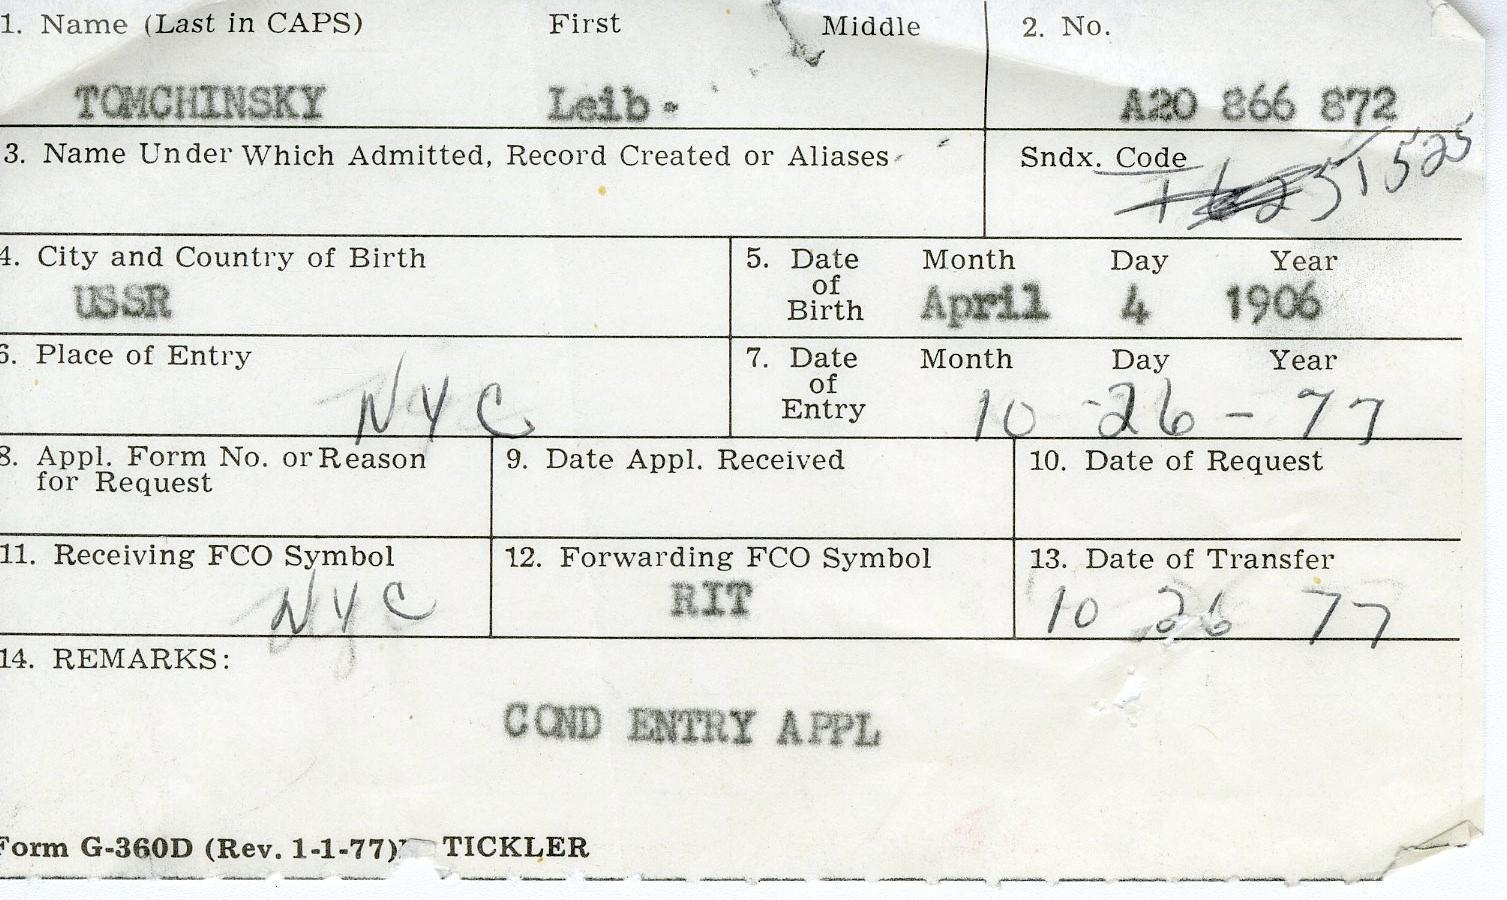 1. Name (Last in CAPS) First Middle 2. No.
TOMCHINSKY Leib A20 866 872
3. Name Under Which Admitted, Record Created or Aliases Sndx. Code
T525
4. City and Country of Birth 5. Date of Birth Month Day Year
USSR April 4 1906
6. Place of Entry 7. Date of Entry Month Day Year
NYC 10-26-77
8. Appl. Form No. or Reason for Request 9. Date Appl. Received 10. Date of Request
11. Receiving FCO Symbol 12. Forwarding FCO Symbol 13. Date of Transfer
NYC RIT 10 26 77
14. REMARKS:
COND ENTRY APPL
Form G-360D (Rev. 1-1-77) TICKLER